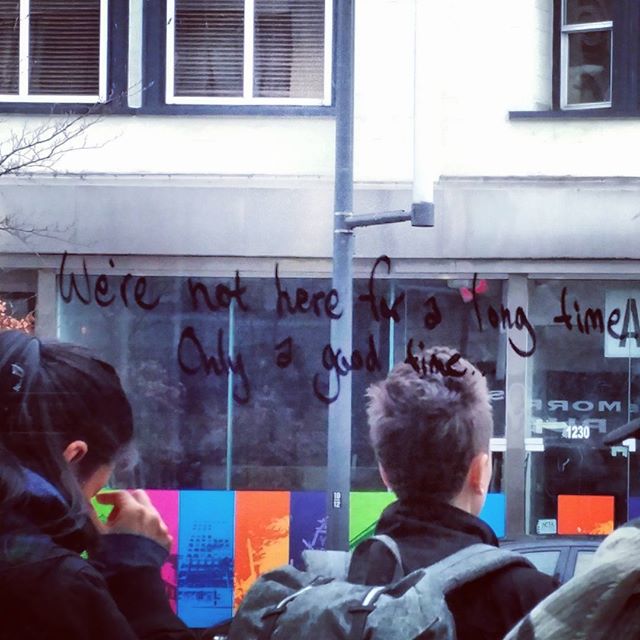 We're not here for a long time
Only a good time...
A
MORR
1230